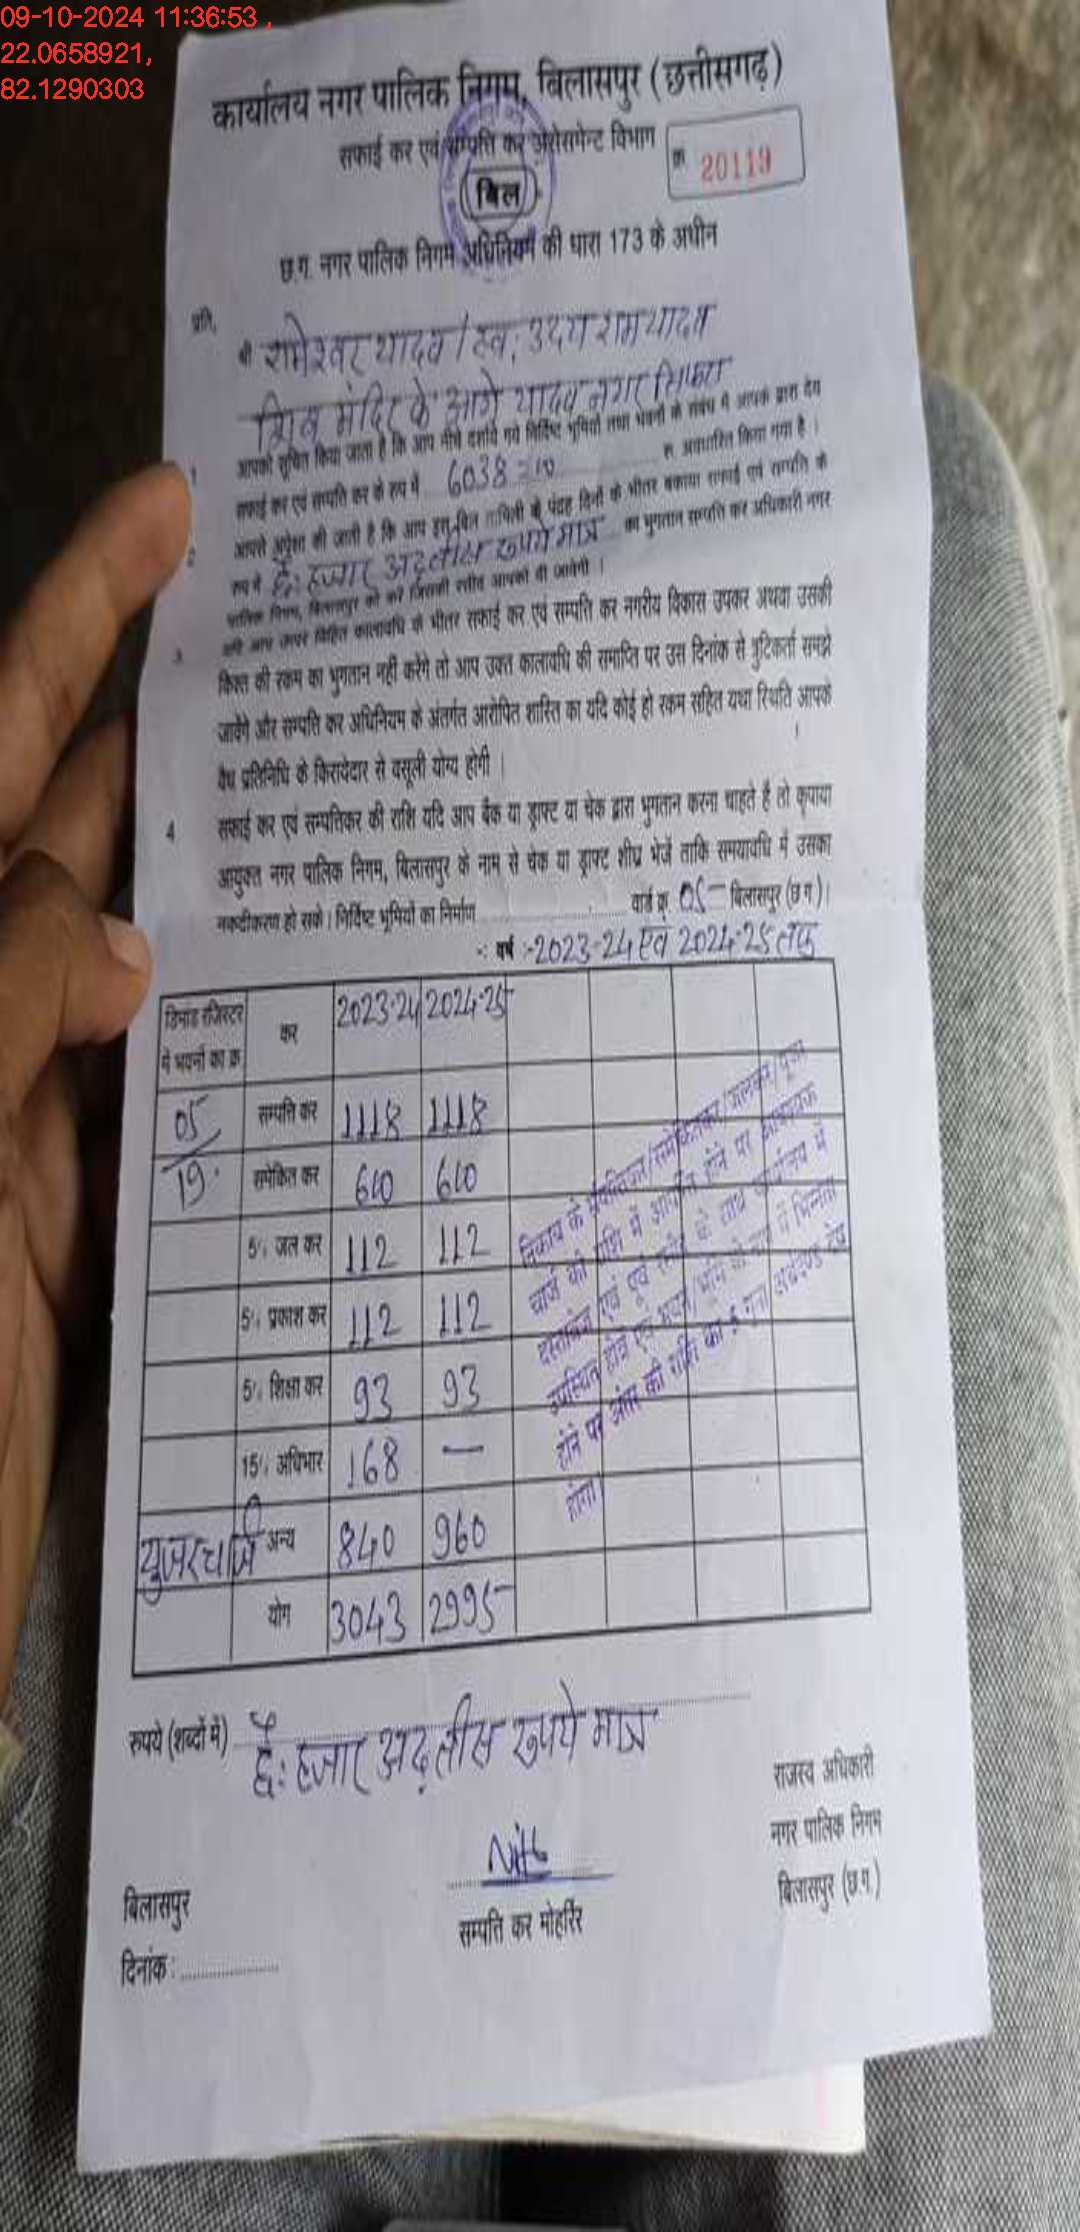 09-10-2024 11:36:53 ,
22.0658921,
82.1290303
कार्यालय नगर पालिक निगम, बिलासपुर (छत्तीसगढ़)
सफाई कर एवं सम्पत्ति कर असेसमेन्ट विभाग
क्र. 20119
बिल
छ.ग. नगर पालिक निगम अधिनियम की धारा 173 के अधीन
प्रति,
श्री रामेश्वर यादव / स्व. उदय राम यादव
शिव मंदिर के आगे यादव नगर
1 आपको सूचित किया जाता है कि आप नीचे दर्शाये गये निर्दिष्ट भूमियों तथा भवनों के संबंध में आपके द्वारा देय
सफाई कर एवं सम्पत्ति कर के रुप में 6038=00 रु. अवधारित किया गया है।
2 आपसे अपेक्षा की जाती है कि आप इस बिल तामिली के पंद्रह दिनों के भीतर बकाया सफाई एवं सम्पत्ति के
रुप में छै: हजार अड़तीस रुपये मात्र का भुगतान सम्पत्ति कर अधिकारी नगर
पालिक निगम, बिलासपुर को करें जिसकी रसीद आपको दी जावेगी।
3 यदि आप ऊपर विहित कालावधि के भीतर सफाई कर एवं सम्पत्ति कर नगरीय विकास उपकर अथवा उसकी
किस्त की रकम का भुगतान नहीं करेंगे तो आप उक्त कालावधि की समाप्ति पर उस दिनांक से त्रुटिकर्ता समझे
जावेंगे और सम्पति कर अधिनियम के अंतर्गत आरोपित शास्ति का यदि कोई हो रकम सहित यथा स्थिति आपके
वैध प्रतिनिधि के किरायेदार से वसूली योग्य होगी।
4 सफाई कर एवं सम्पत्तिकर की राशि यदि आप बैंक या ड्राफ्ट या चेक द्वारा भुगतान करना चाहते हैं तो कृपाया
आयुक्त नगर पालिक निगम, बिलासपुर के नाम से चेक या ड्राफ्ट शीघ्र भेजें ताकि समयावधि में उसका
नकदीकरण हो सके। निर्दिष्ट भूमियों का निर्माण .................... वार्ड क्र 05 बिलासपुर (छ.ग.)।
-: वर्ष :- 2023-24 एवं 2024-25 तक
डिमांड रजिस्टर में भवनों का क्र कर 2023-24 2024-25
05 सम्पत्ति कर 1118 1118
19 समेकित कर 600 600
5% जल कर 112 112
5% प्रकाश कर 112 112
5% शिक्षा कर 93 93
15% अधिभार 168 —
यूजर चार्ज अन्य 840 960
योग 3043 2995
निकाय के सम्पत्तिकर/समेकितकर/जलकर/यूजर
चार्ज की राशि में आपत्ति होने पर आवश्यक
दस्तावेज एवं पूर्व रसीद के साथ कार्यालय में
उपस्थित होवे एवं भवन/भूमि के माप में भिन्नता
होने पर अंतर की राशि का 5 गुना अर्थदण्ड देय
होगा।
रुपये (शब्दों में) छै: हजार अड़तीस रुपये मात्र
राजस्व अधिकारी
नगर पालिक निगम
बिलासपुर (छ.ग.)
सम्पति कर मोहर्रिर
बिलासपुर
दिनांक : ....................